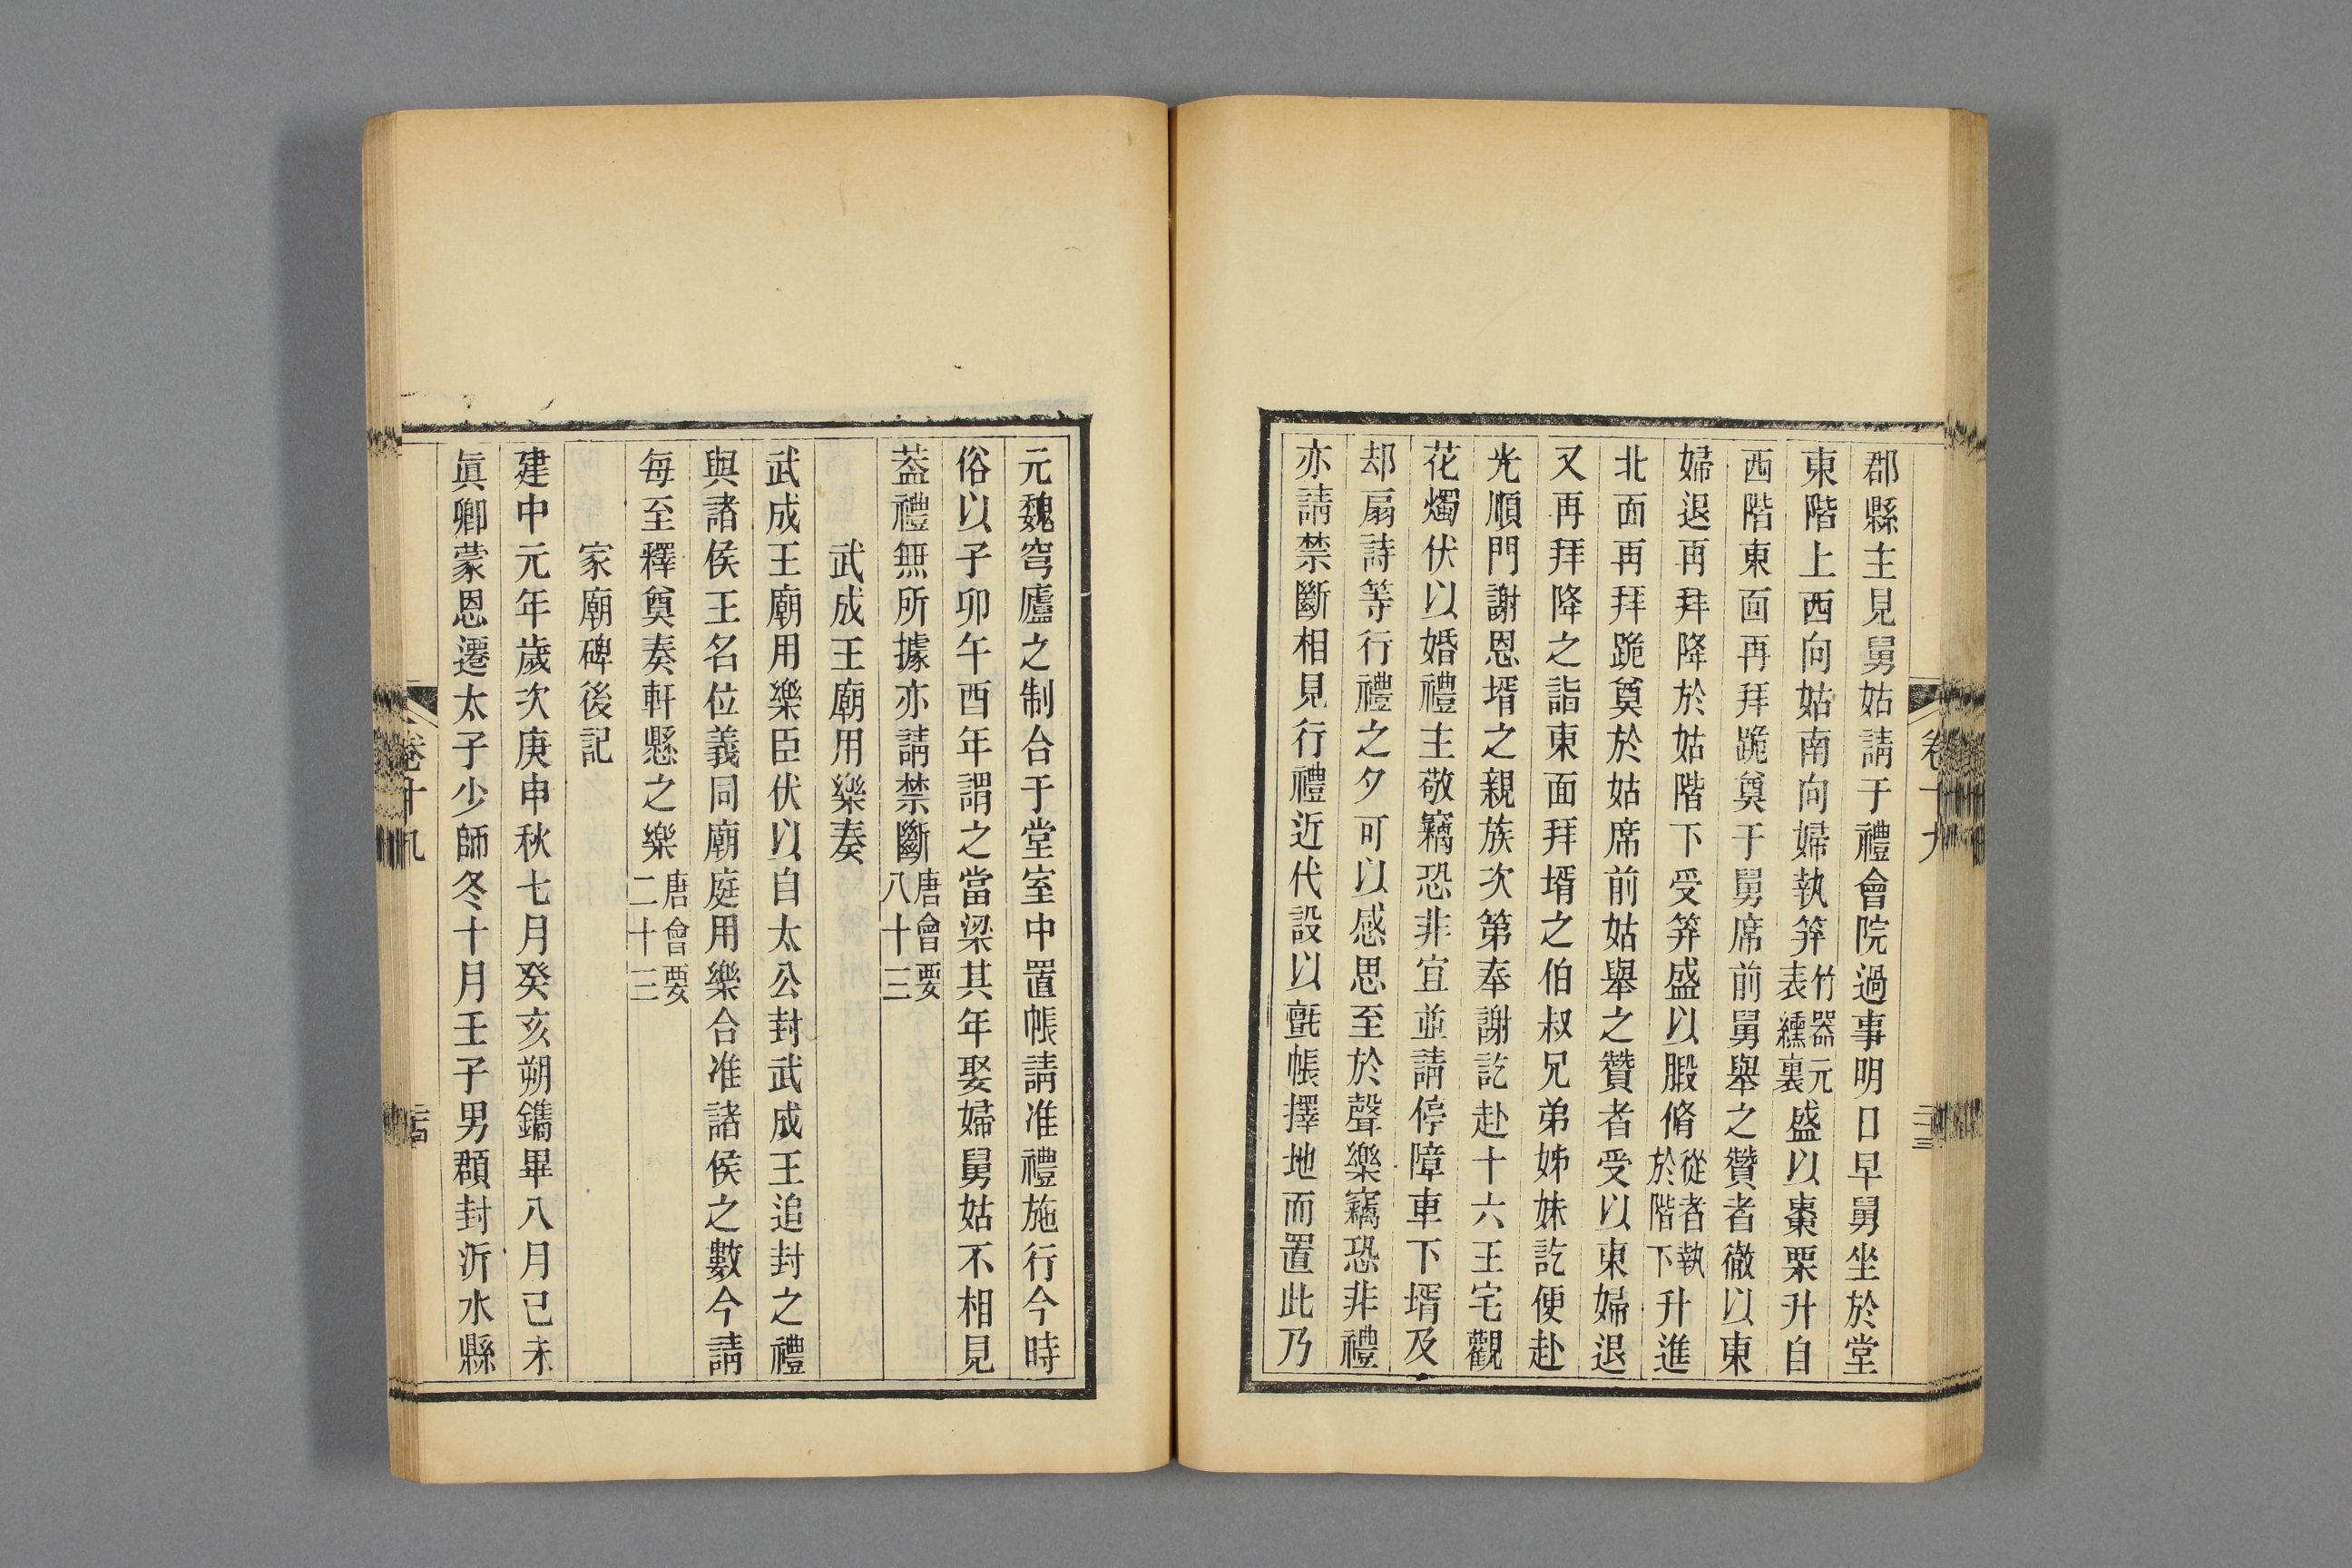 郡縣主見舅姑請于禮會院過事明日早舅坐於堂
東階上西向姑南向婦執笲竹器元表纁裏盛以棗栗升自
西階東面再拜跪奠于舅席前舅舉之贊者徹以東
婦退再拜降於姑階下受笲盛以腶脩從者執於階下升進
北面再拜跪奠於姑席前姑舉之贊者受以東婦退
又再拜降之詣東面拜壻之伯叔兄弟姊妹訖便赴
光順門謝恩壻之親族次第奉謝訖赴十六王宅觀
花燭伏以婚禮主敬竊恐非宜並請停障車下壻及
却扇詩等行禮之夕可以感思至於聲樂竊恐非禮
亦請禁斷相見行禮近代設以氈帳擇地而置此乃
元魏穹廬之制合于堂室中置帳請准禮施行今時
俗以子卯午酉年謂之當梁其年娶婦舅姑不相見
蓋禮無所據亦請禁斷唐會要八十三
武成王廟用樂奏
武成王廟用樂臣伏以自太公封武成王追封之禮
與諸侯王名位義同廟庭用樂合准諸侯之數今請
每至釋奠奏軒懸之樂唐會要二十三
家廟碑後記
建中元年歲次庚申秋七月癸亥朔鐫畢八月己未
眞卿蒙恩遷太子少師冬十月壬子男頵封沂水縣
卷十九